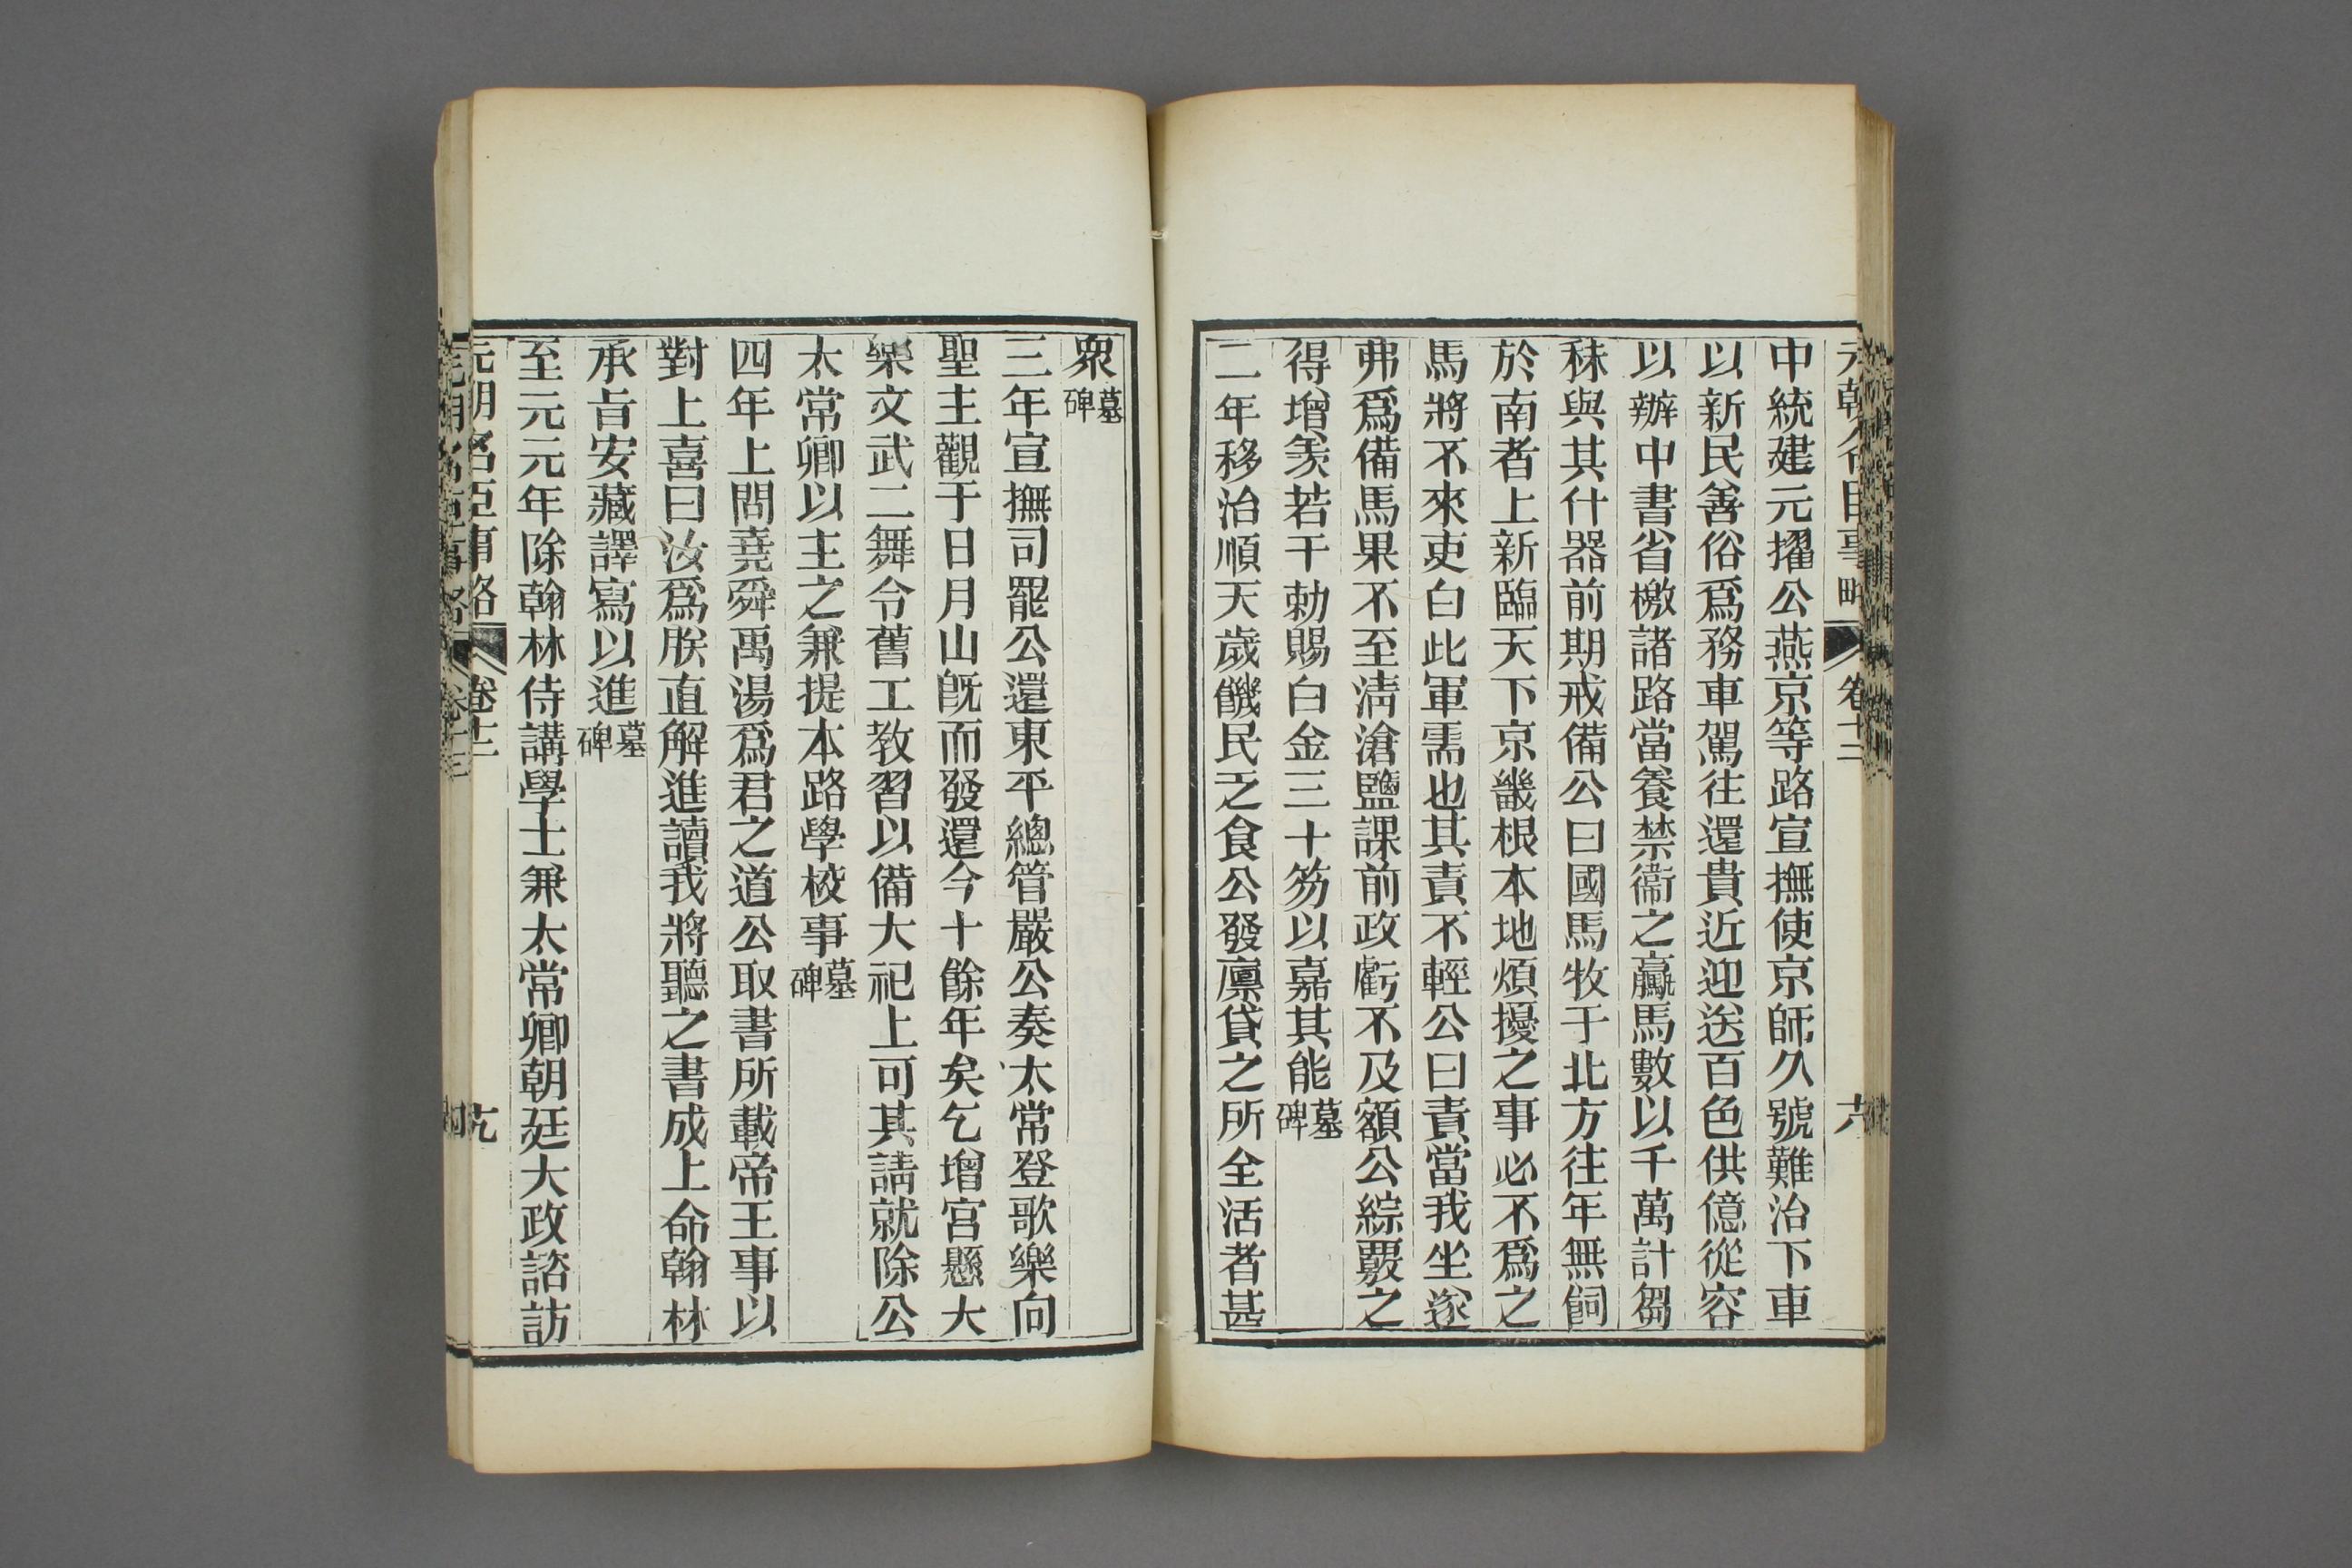 中統建元擢公燕京等路宣撫使京師久號難治下車
以新民善俗爲務車駕往還貴近迎送百色供億從容
以辦中書省檄諸路當養禁衞之羸馬數以千萬計芻
秣與其什器前期戒備公曰國馬牧于北方往年無飼
於南者上新臨天下京畿根本地煩擾之事必不爲之
馬將不來吏白此軍需也其責不輕公曰責當我坐遂
弗爲備馬果不至淸滄鹽課前政虧不及額公綜覈之
得增羨若干勅賜白金三十笏以嘉其能墓碑
二年移治順天歲饑民乏食公發廪貸之所全活者甚
衆墓碑
三年宣撫司罷公還東平總管嚴公奏太常登歌樂向
聖主觀于日月山旣而發還今十餘年矣乞增宮懸大
樂文武二舞令舊工敎習以備大祀上可其請就除公
太常卿以主之兼提本路學校事墓碑
四年上問堯舜禹湯爲君之道公取書所載帝王事以
對上喜曰汝爲朕直解進讀我將聽之書成上命翰林
承旨安藏譯寫以進墓碑
至元元年除翰林侍講學士兼太常卿朝廷大政諮訪
元朝名臣事略 卷十二